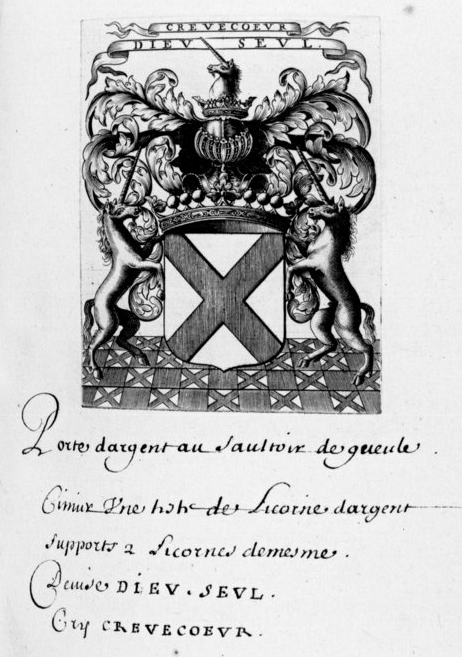 CREVECOEVR
DIEV SEVL.
Porte dargent au Saultoir de gueule.
Cimier Vne teste de Licorne dargent
Supports 2 Licornes demesme.
Deuise DIEV. SEVL.
Cry CREVECOEVR.